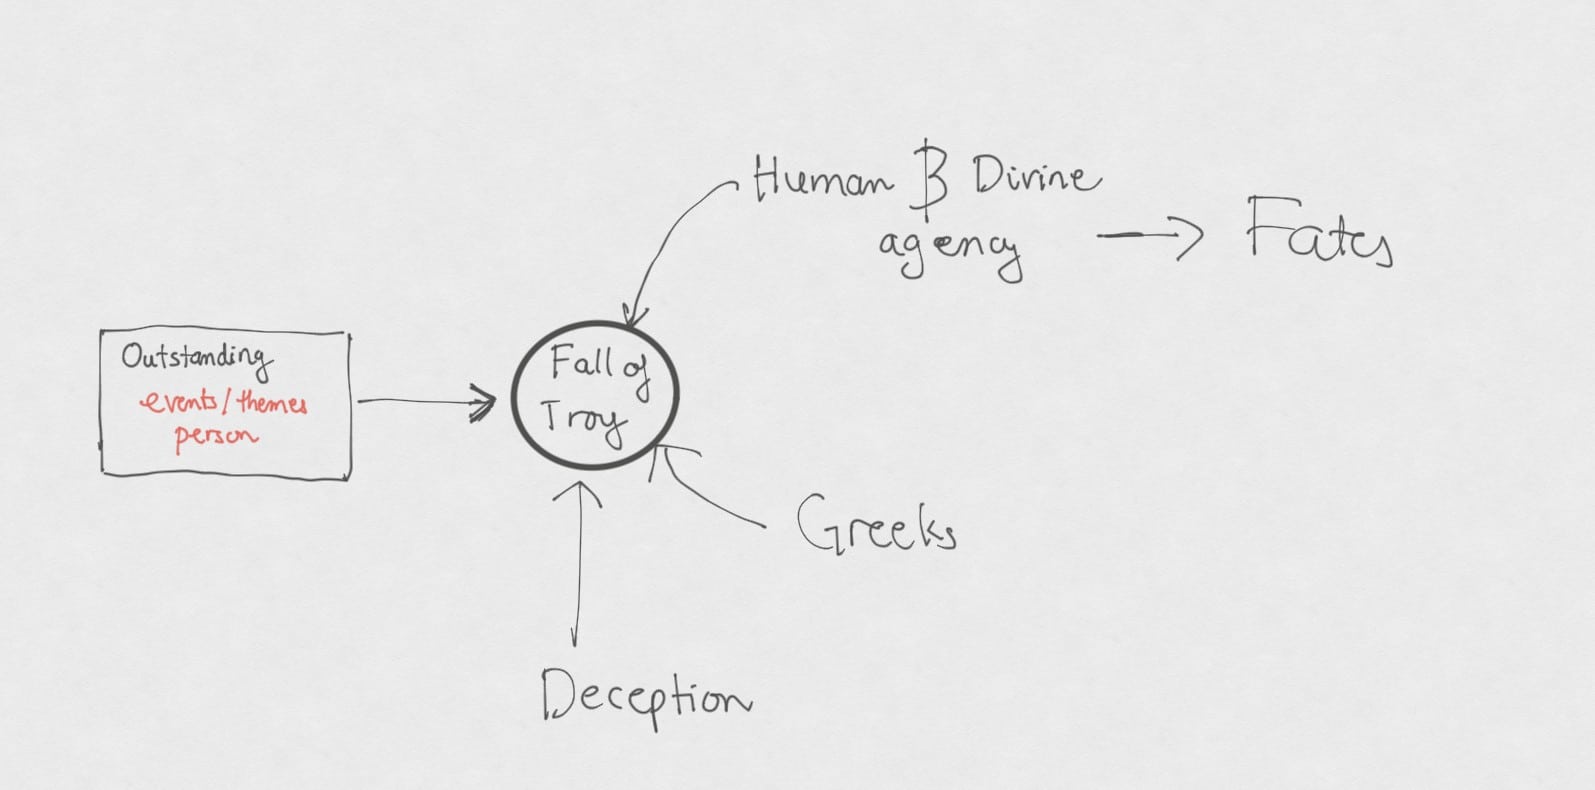 Human & Divine
agency
Fates
Outstanding
events/themes
person
Fall of
Troy
Greeks
Deception